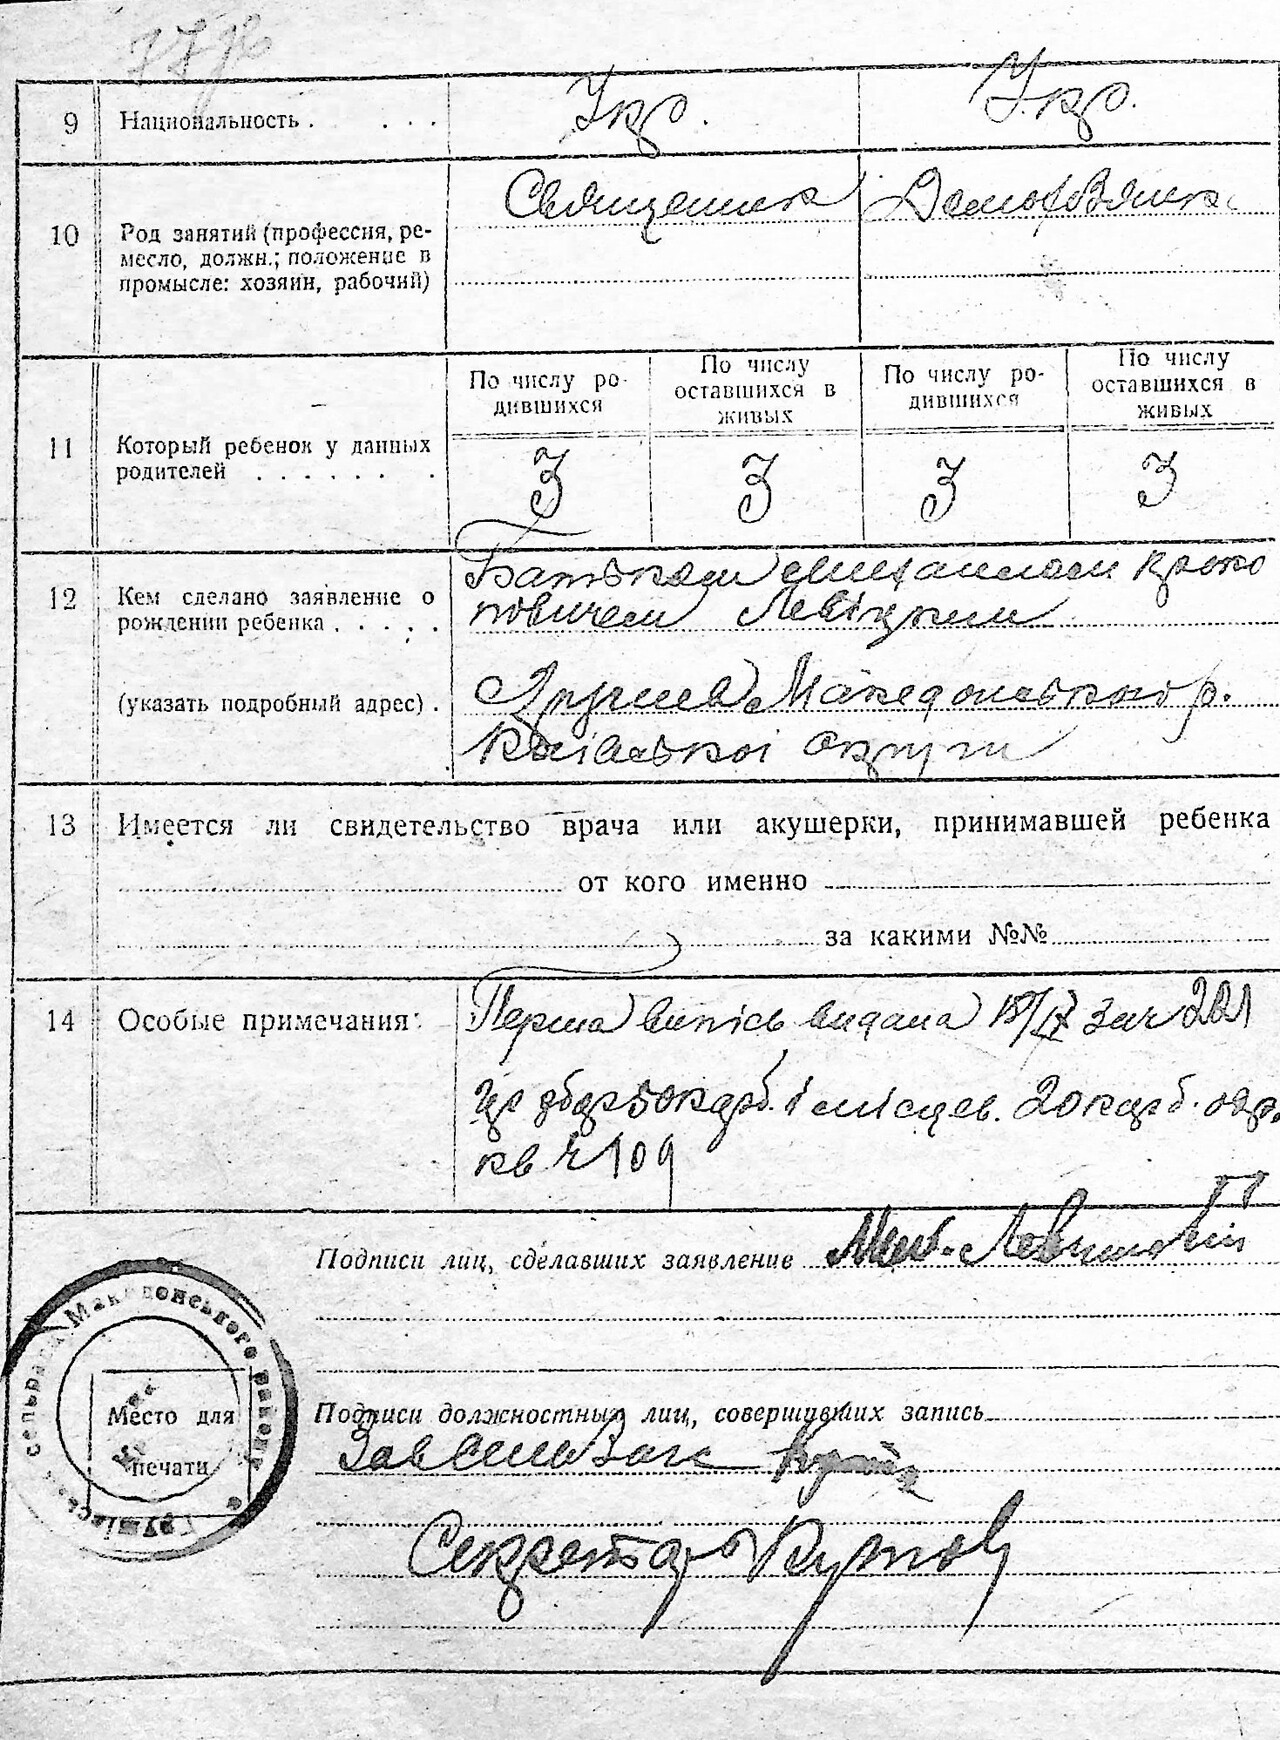 9 Национальность . . . . Укр. Укр.
10 Род занятий (профессия, ре-
месло, должн.; положение в
промысле: хозяин, рабочий)
Священик Домохозяйк
11 Который ребенок у данных
родителей . . . . . . .
По числу ро-
дившихся
По числу
оставшихся в
живых
По числу ро-
дившихся
По числу
оставшихся в
живых
3 3 3 3
12 Кем сделано заявление о
рождении ребенка . . . . .
(указать подробный адрес) .
Батьком Михайлом Проко
повичем Левіцким
Грушев Македонського р.
Київської округи
13 Имеется ли свидетельство врача или акушерки, принимавшей ребенка
от кого именно
за какими №№
14 Особые примечания:
Перша випісь видана 18/IX за ч 221
50 карб. і місцев. 20 карб.
кв ч 109
Подписи лиц, сделавших заявление Мих. Левитский
Подписи должностных лиц, совершивших запись
Зав
Секретарь
Место для
печати
Грушівська сельрада Македонського району